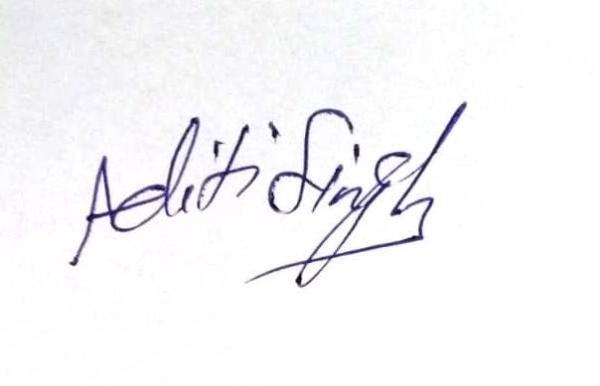 Aditi Singh